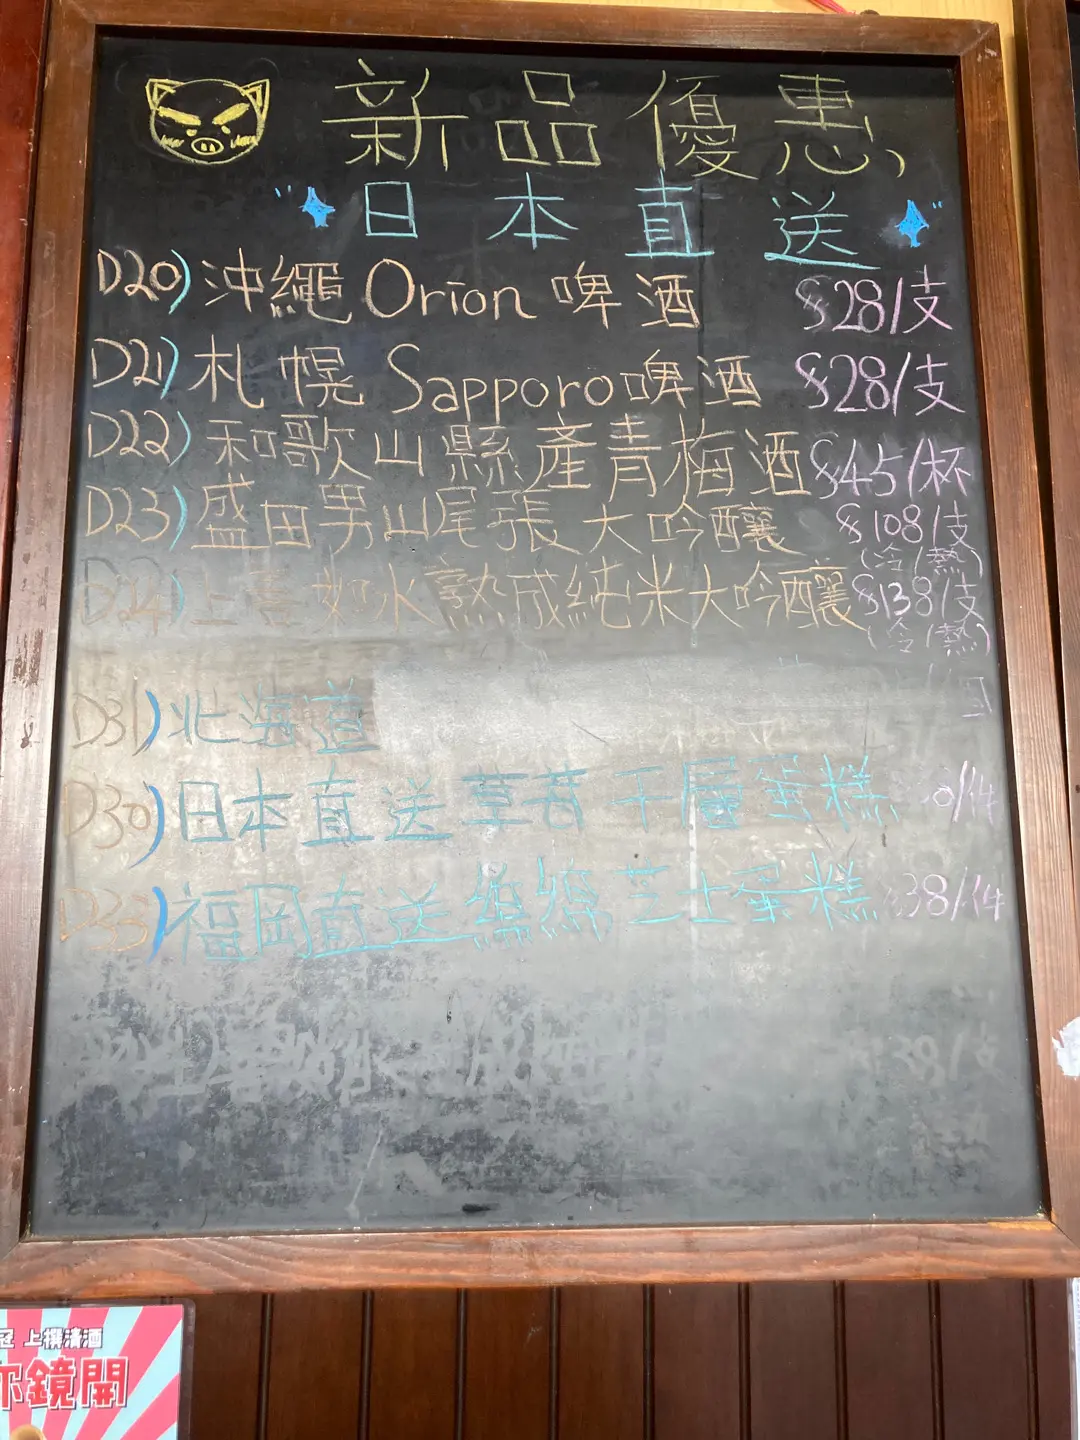 新品優惠
日本直送
D20) 沖繩 Orion 啤酒 $28/支
D21) 札幌 Sapporo 啤酒 $28/支
D22) 和歌山縣產青梅酒 $45/杯
D23) 盛田男山尾張大吟釀 $108/支
(冷/熱)
D24) 上善如水熟成純米大吟釀 $138/支
(冷/熱)
D31) 北海道
D30) 日本直送草苺千層蛋糕 /件
D33) 福岡直送綿綿芝士蛋糕 $38/件
38/支
上撰清酒
鏡開